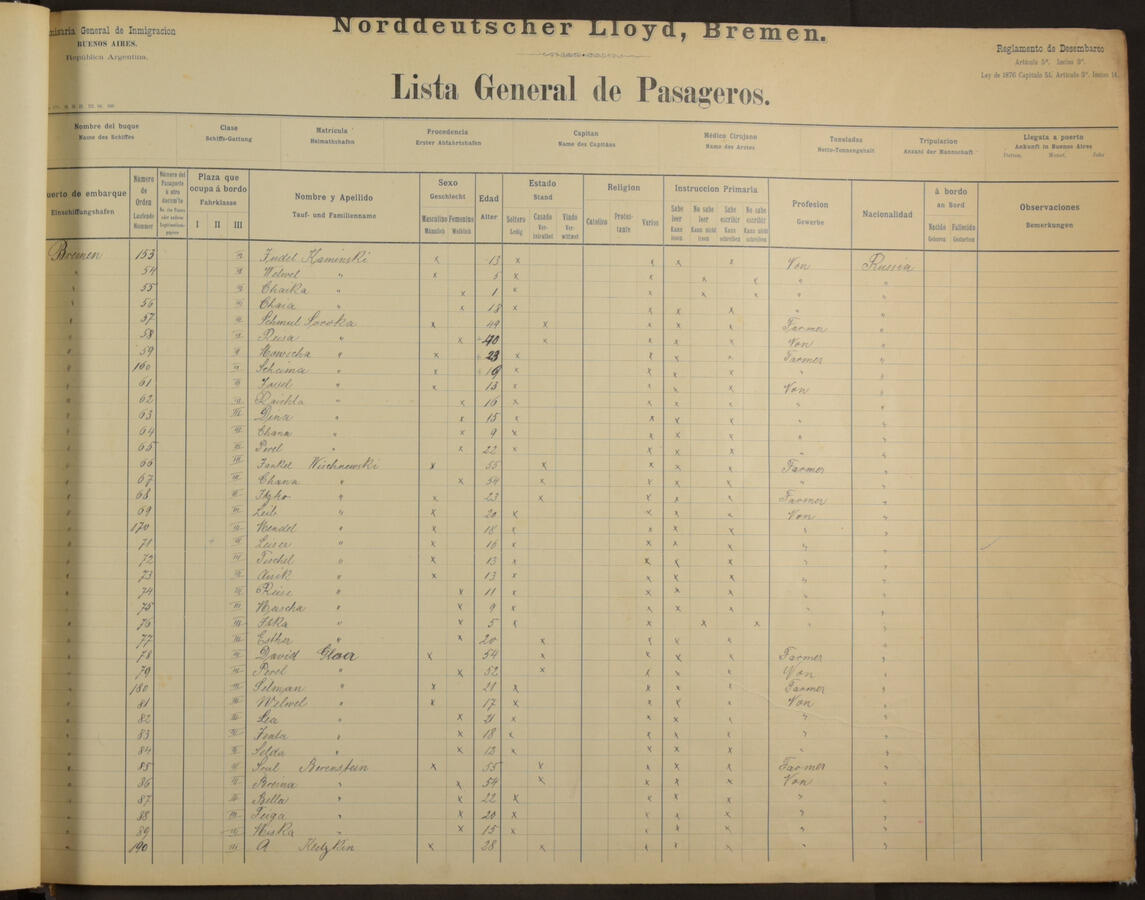 Norddeutscher Lloyd, Bremen.
General de Inmigracion
BUENOS AIRES.
República Argentina.
Reglamento de Desembarco
Artículo 5º. Inciso 9º.
Ley de 1876 Capitulo 51, Artículo 3º. Inciso 14.
Lista General de Pasageros.
Nombre del buque Clase Matricula Procedencia Capitan Médico Cirujano Toneladas Tripulacion Llegata a puerto
Name des Schiffes Schiffs-Gattung Heimathshafen Erster Abfahrtshafen Name des Capitäns Name des Arztes Netto-Tonnengehalt Anzahl der Mannschaft Ankunft in Buenos Aires
Datum. Monat. Jahr
uerto de embarque
Einschiffungshafen
Número de Orden
Laufende Nummer
Número del Pasaporte ú otro
Plaza que ocupa á bordo
Fahrklasse
I II III
Nombre y Apellido
Tauf- und Familienname
Sexo
Geschlecht
Masculino Femenino
Männlich Weiblich
Edad
Alter
Estado
Stand
Soltero Casado Viudo
Ledig Ver-heirathet Ver-wittwet
Religion
Catolica Protes-tante Varios
Instruccion Primaria
Sabe leer No sabe leer Sabe escribir No sabe escribir
Kann lesen Kann nicht lesen Kann schreiben Kann nicht schreiben
Profesion
Gewerbe
Nacionalidad
á bordo
an Bord
Nacido Fallecido
Geboren Gestorben
Observaciones
Bemerkungen
Bremen 153 III Judel Kaminski x 13 x x x x Von Russia
" 54 III Welwel " x 5 x x x x " "
" 55 III Chaika " x 1 x x x x " "
" 56 III Chaia " x 18 x x x x " "
" 57 III Schmul Soroka x 49 x x x x Farmer "
" 58 III " x 40 x x x x Von "
" 59 III " x 23 x x x x Farmer "
" 160 III " x 19 x x x x " "
" 61 III " x 13 x x x x Von "
" 62 III " x 16 x x x x " "
" 63 III Dina " x 15 x x x x " "
" 64 III Chana " x 9 x x x x " "
" 65 III Perel " x 22 x x x x " "
" 66 III Jankel Wischnewski x 55 x x x x Farmer "
" 67 III Chana " x 54 x x x x " "
" 68 III " x 23 x x x x Farmer "
" 69 III Leib " x 20 x x x x Von "
" 170 III Mendel " x 18 x x x x " "
" 71 III Leiser " x 16 x x x x " "
" 72 III Fischel " x 13 x x x x " "
" 73 III " x 13 x x x x " "
" 74 III " x 11 x x x x " "
" 75 III " x 9 x x x x " "
" 76 III " x 5 x x x x " "
" 77 III Esther " x 20 x x x x "
" 78 III David x 54 x x x x Farmer "
" 79 III Perel " x 52 x x x x Von "
" 180 III Selman " x 21 x x x x Farmer "
" 81 III Welwel " x 17 x x x x Von "
" 82 III Lea " x 21 x x x x " "
" 83 III " x 18 x x x x " "
" 84 III Selda " x 12 x x x x " "
" 85 III Berenstein x 55 x x x x Farmer "
" 86 III Breina " x 54 x x x x Von "
" 87 III Bella " x 22 x x x x " "
" 88 III Feiga " x 20 x x x x " "
" 89 III " x 15 x x x x " "
" 190 III A x 28 x x x x " "